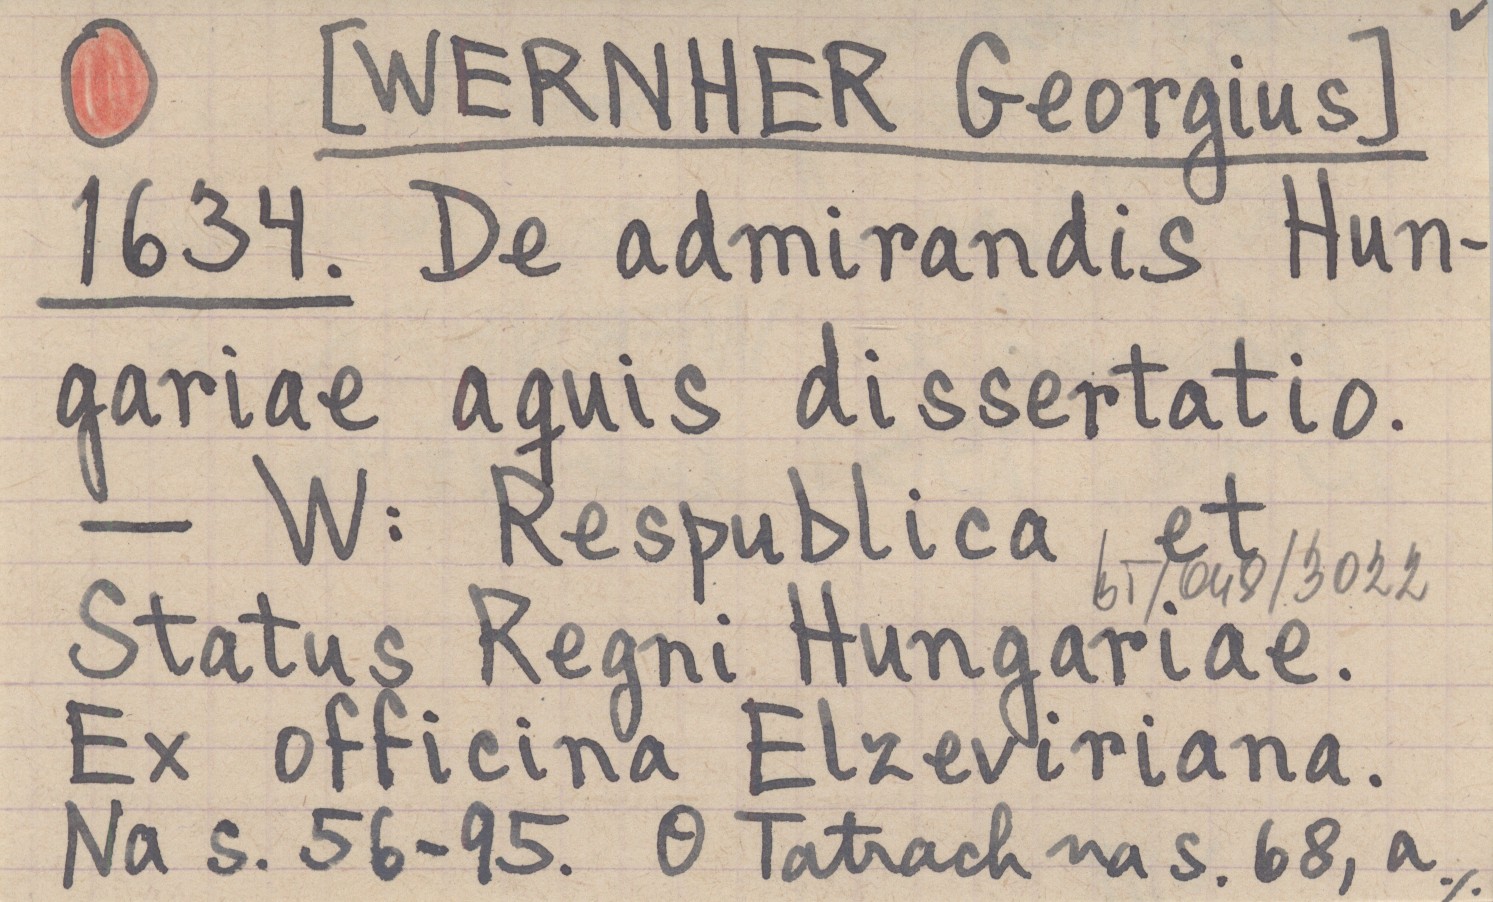 [WERNHER Georgius]
1634. De admirandis Hun-
gariae aquis dissertatio.
— W: Respublica et
bT/048/3022
Status Regni Hungariae.
Ex officina Elzeviriana.
Na s. 56-95. O Tatrach na s. 68, a ./.